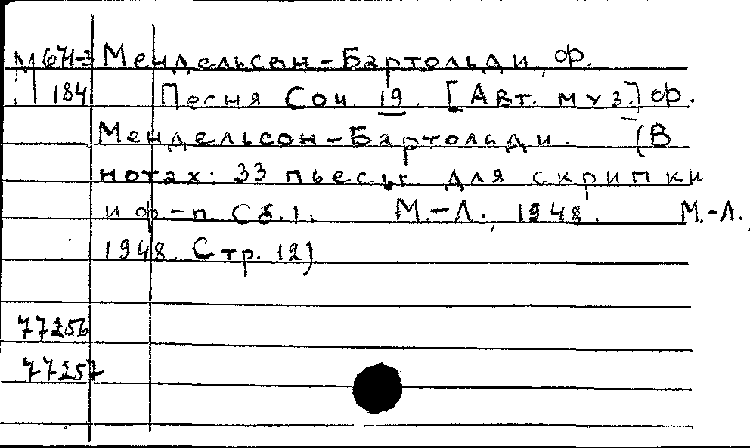 М 671-3 Мендельсон-Бартольди, Ф.
184 Песня Соч. 19. [Авт. муз.] Ф.
Мендельсон-Бартольди. (В
нотах: 33 пьесы для скрипки
и ф-п. Сб. 1. М.-Л., 1948. М.-Л.,
1948. Стр. 12)
77256
77257